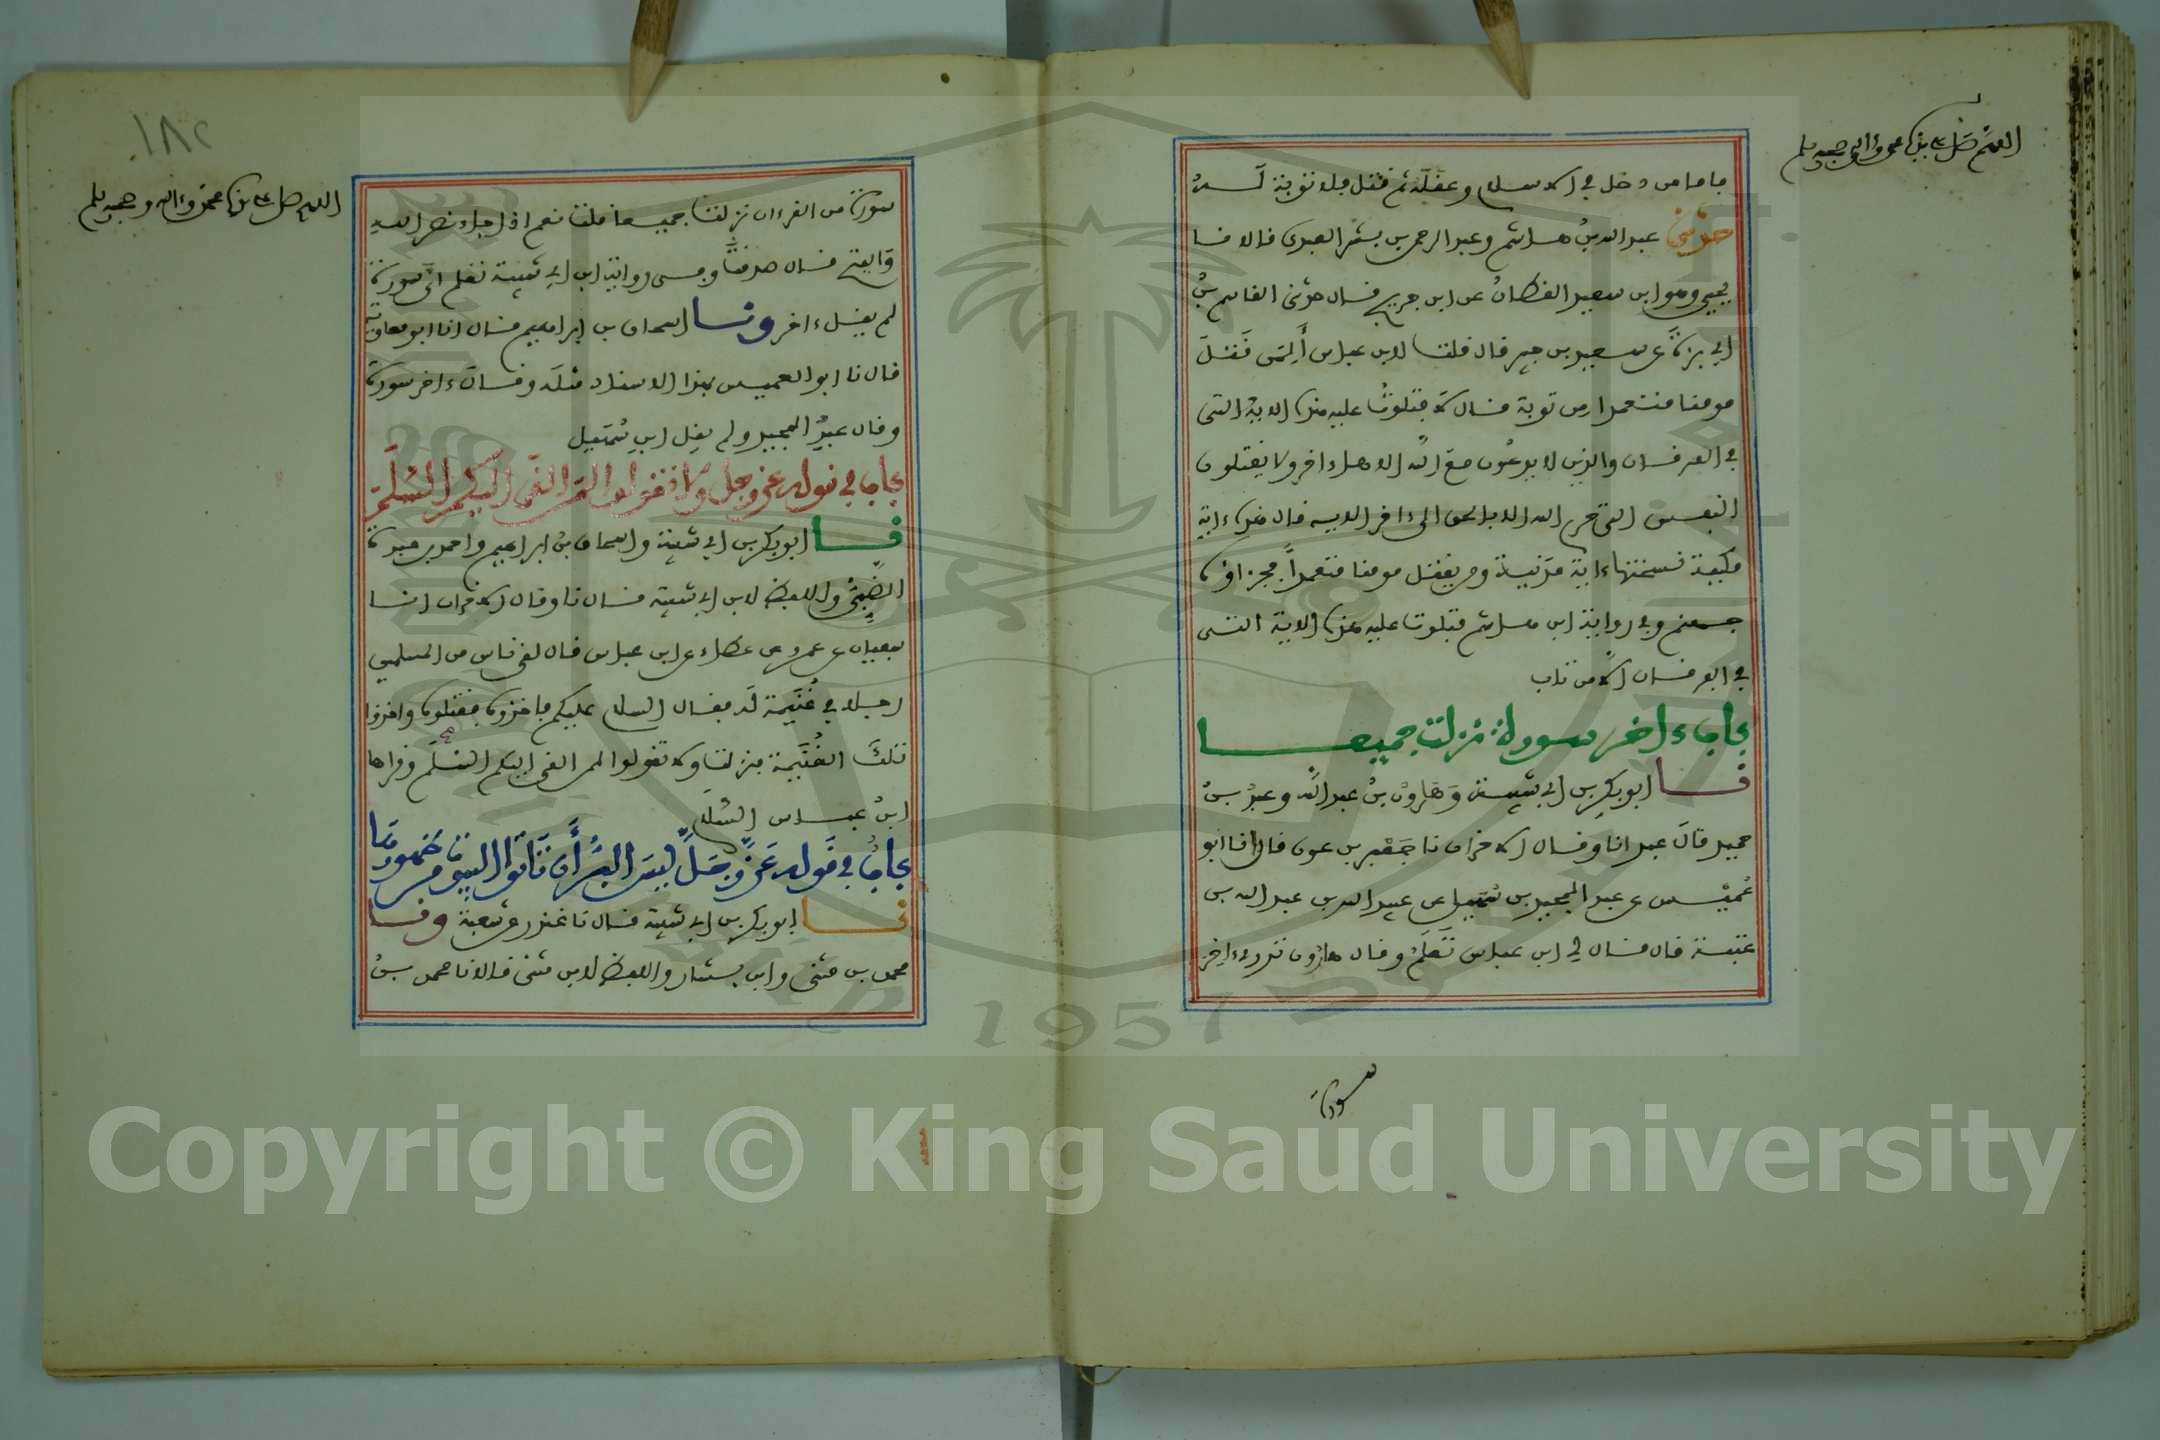 اللهم صل على سيدنا محمد وءاله وصحبه وسلم
فاما من دخل في الاسلام وعقله ثم قتل فلا توبة له
حدثني عبد الله بن هاشم وعبد الرحمن بن بشر العبدي قالا نا
يحيى وهو ابن سعيد القطان عن ابن جريج قال حدثني القاسم بن
ابي بزة عن سعيد بن جبير قال قلت لابن عباس ألمن قتل
مومنا متعمدا من توبة قال لا فتلوت عليه هذه الاية التي
في الفرقان والذين لا يدعون مع الله الاها ءاخر ولا يقتلون
النفس التي حرم الله الا بالحق الى ءاخر الاية قال هذه ءاية
مكية نسختها ءاية مدنية ومن يقتل مومنا متعمدا فجزاؤه
جهنم وفي رواية ابن هاشم فتلوت عليه هذه الاية التي
في الفرقان الا من تاب
باب ءاخر سورة نزلت جميعا
نا ابو بكر بن ابي شيبة وهارون بن عبد الله وعبد بن
حميد قال عبد انا وقال الاخران نا جعفر بن عون قال انا ابو
عميس عن عبد المجيد بن سهيل عن عبيد الله بن عبد الله بن
عتبة قال قال لي ابن عباس تعلم وقال هارون تدري ءاخر
سورة
١٨٢
اللهم صل على سيدنا محمد وءاله وصحبه وسلم
سورة من القرءان نزلت جميعا قلت نعم اذا جاء نصر الله
والفتح قال صدقت وفي رواية ابن ابي شيبة تعلم اي سورة
لم يقل ءاخر ونا اسحاق بن ابراهيم قال انا ابو معاوية
قال نا ابو العميس بهذا الاسناد مثله وقال ءاخر سورة
وقال عبد المجيد ولم يقل ابن سهيل
باب في قوله عز وجل ولا تقولوا لمن القى اليكم السلم
نا ابو بكر بن ابي شيبة واسحاق بن ابراهيم واحمد بن عبدة
الضبي واللفظ لابن ابي شيبة قال نا وقال الاخران انا
سفيان عن عمرو عن عطاء عن ابن عباس قال لقي ناس من المسلمين
رجلا في غنيمة له فقال السلام عليكم فاخذوه فقتلوه واخذوا
تلك الغنيمة فنزلت ولا تقولوا لمن القى اليكم السلم وقراها
ابن عباس السلام
باب في قوله عز وجل ليس البر أن تاتوا البيوت من ظهورها
نا ابو بكر بن ابي شيبة قال نا غندر عن شعبة ونا
محمد بن مثنى وابن بشار واللفظ لابن مثنى قالا نا محمد بن
1957
Copyright © King Saud University